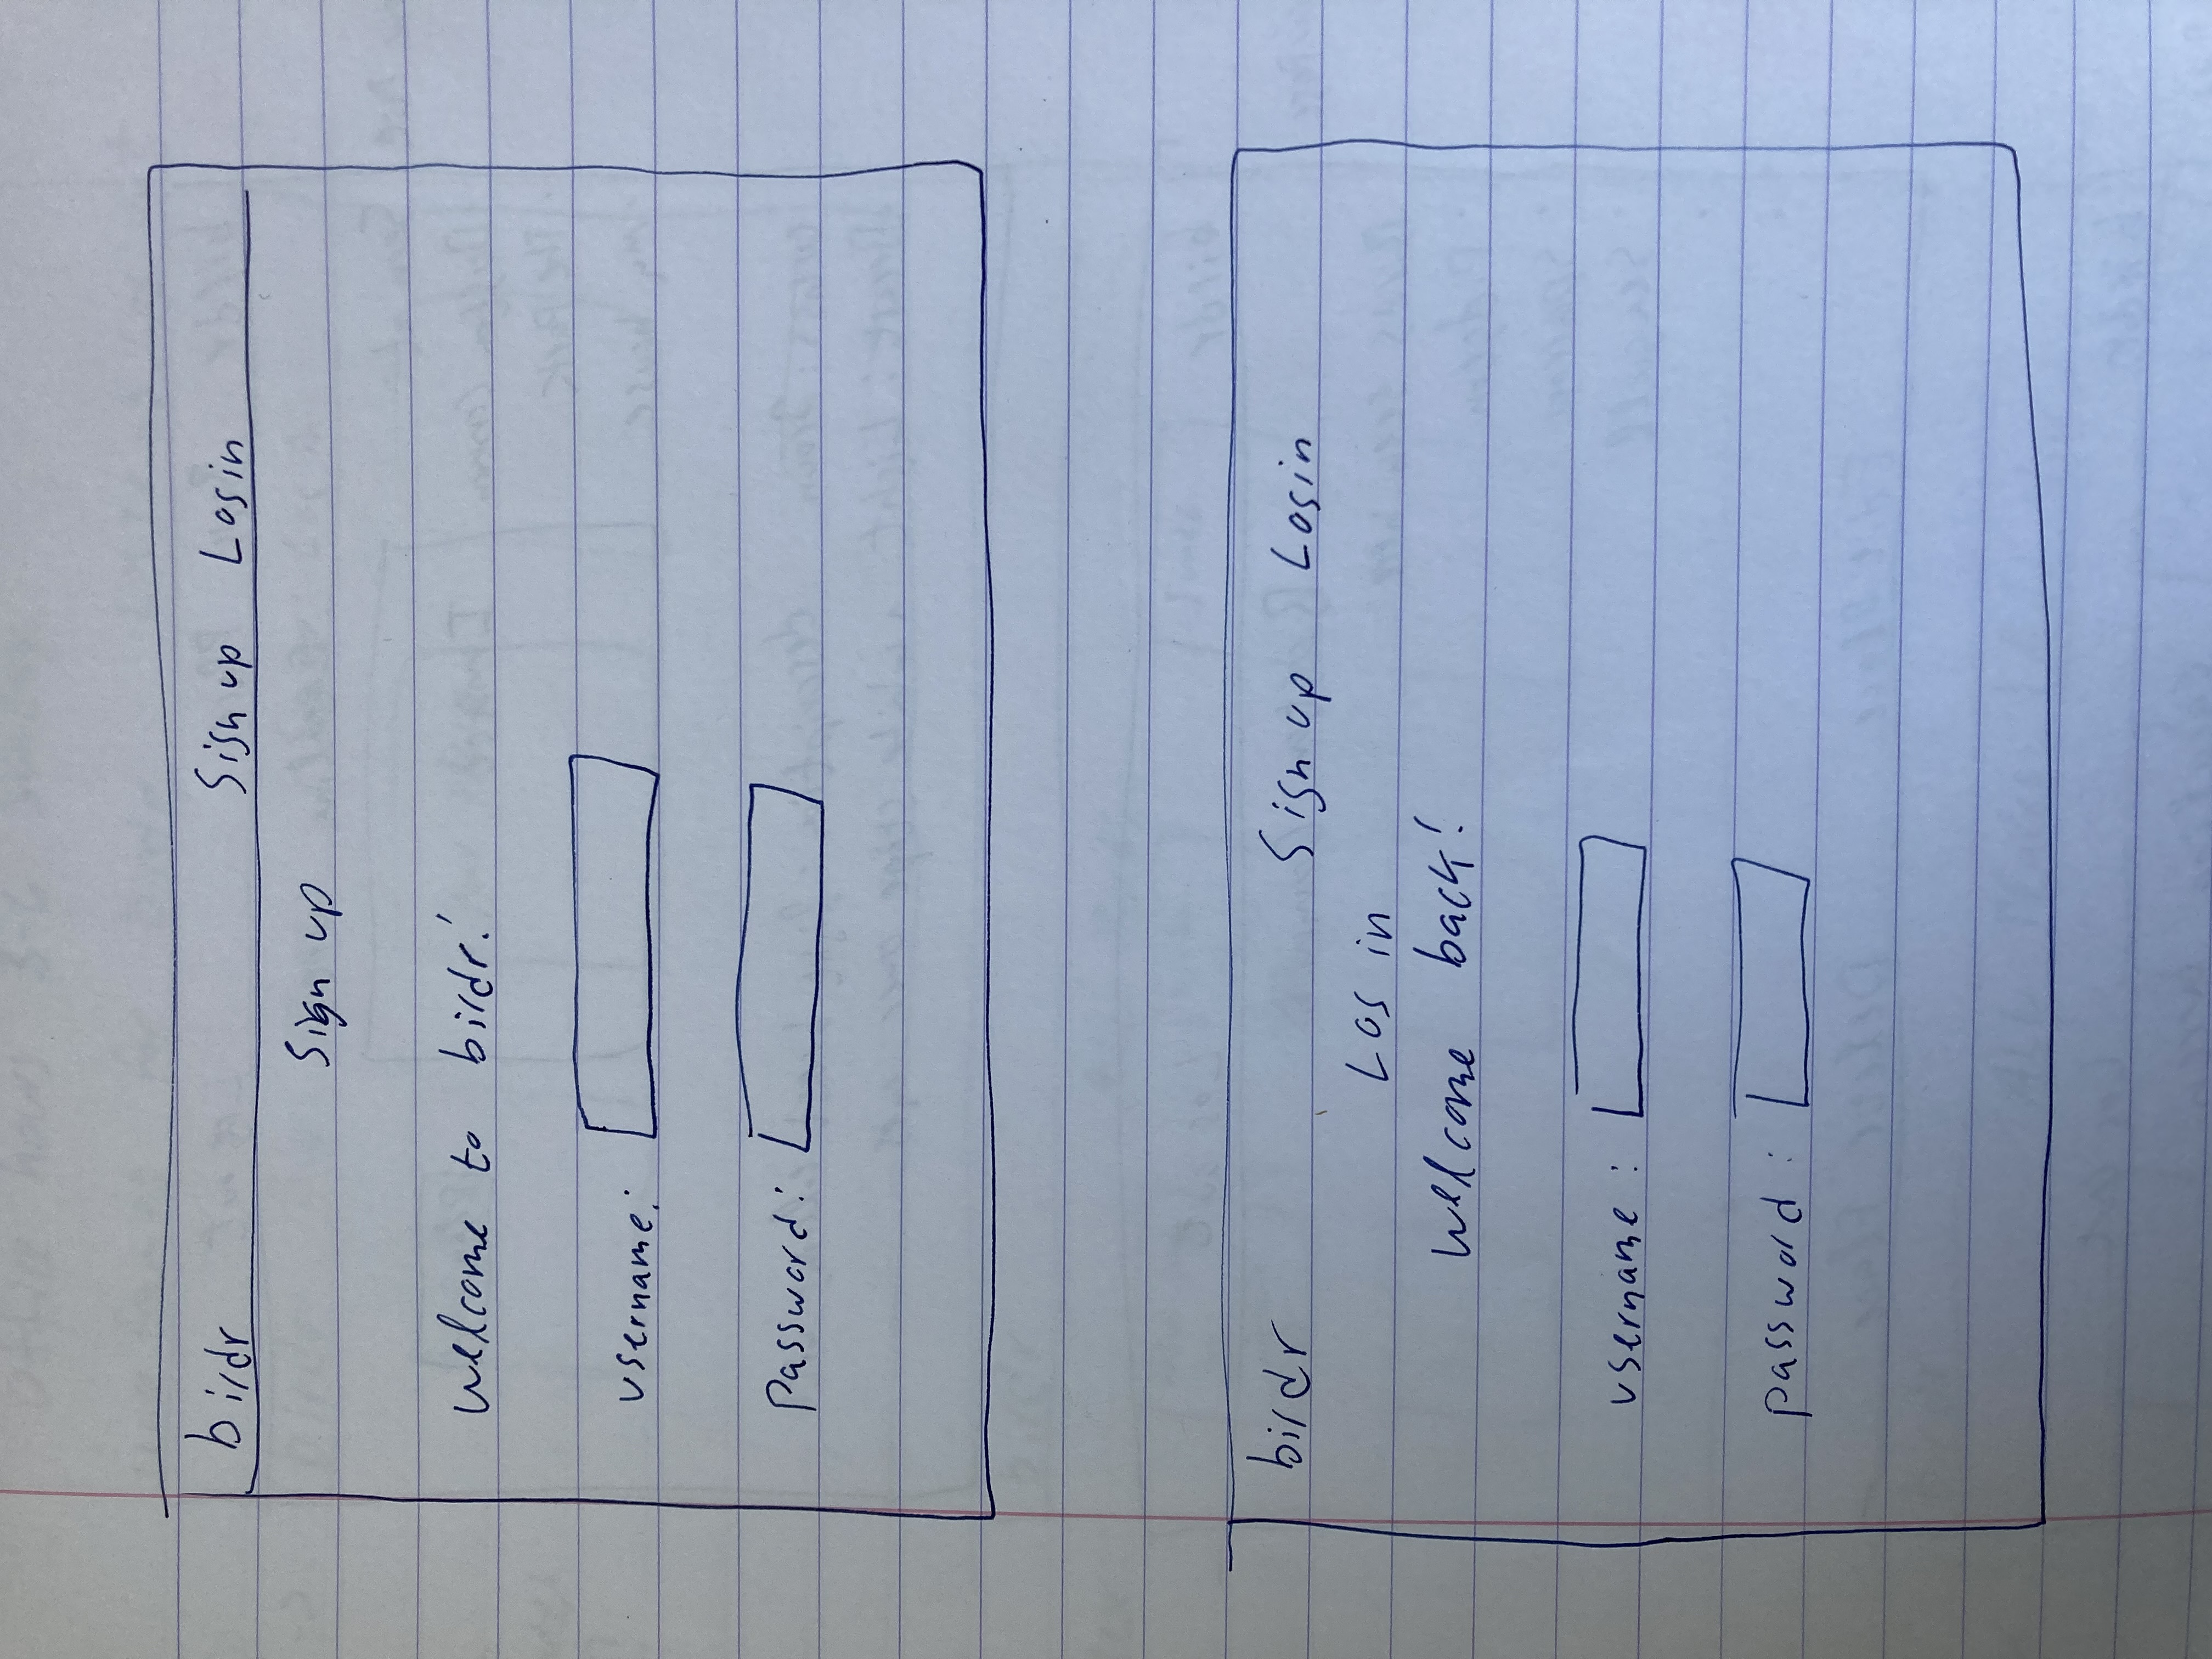 birdr Sign up Login
Sign up
Welcome to birdr!
username:
Password:
birdr Sign up Login
Log in
Welcome back!
username :
password :